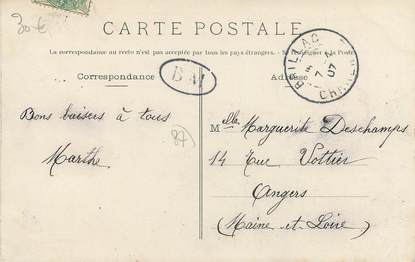 30€
CARTE POSTALE
La correspondance au recto n'est pas acceptée par tous les pays étrangers. à la Poste
Correspondance
Adresse
BM
BRILLAC
7 07
Bons baisers à tous
Marthe
87
Melle Marguerite Deschamps
14 Rue Vottier
Angers
(Maine-et-Loire)